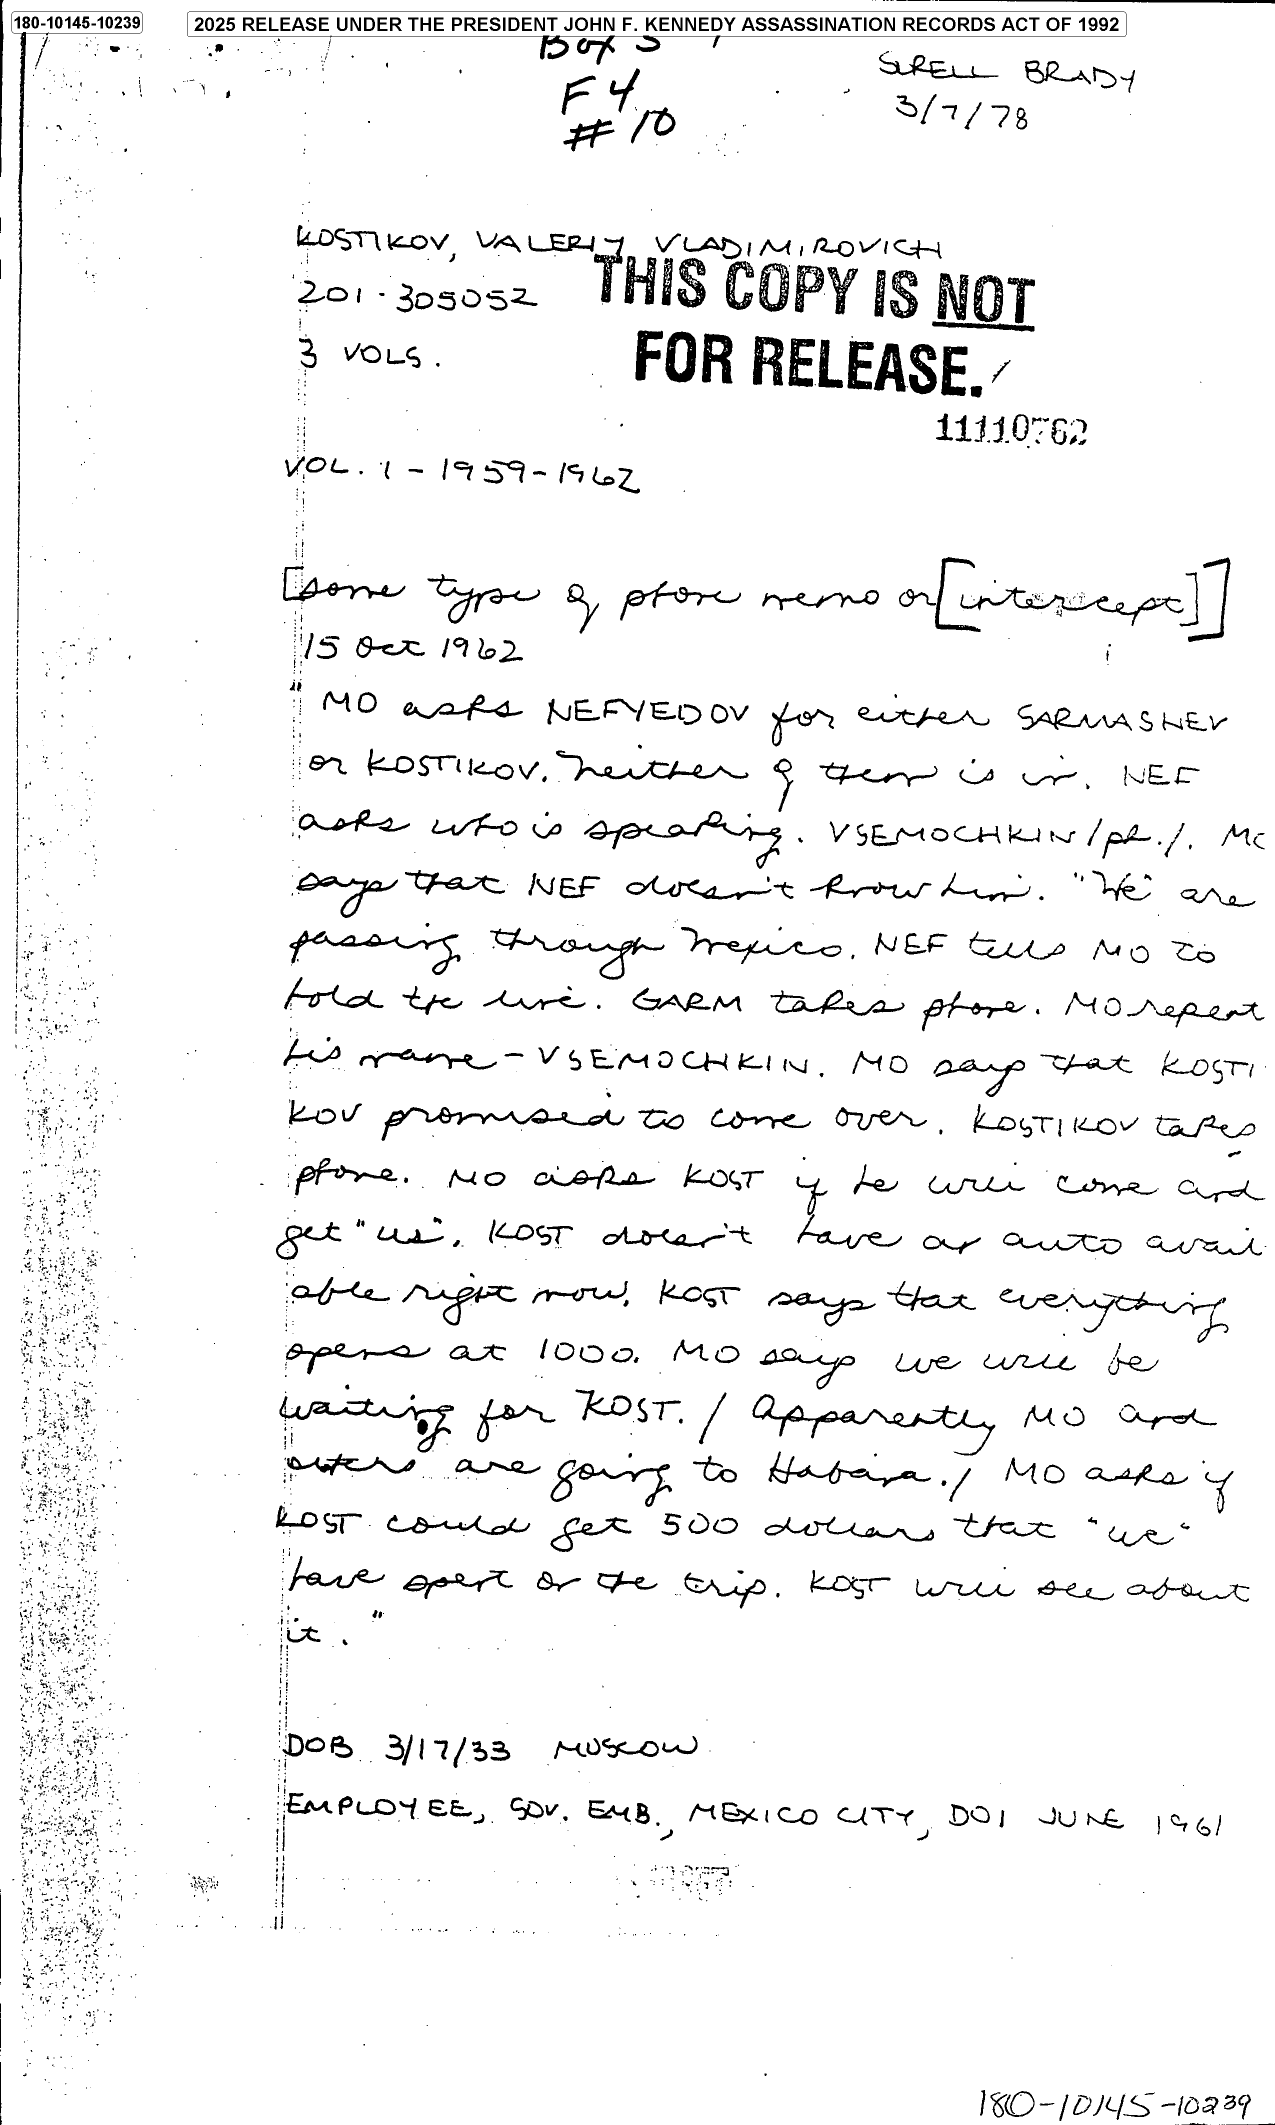 180-10145-10239
2025 RELEASE UNDER THE PRESIDENT JOHN F. KENNEDY ASSASSINATION RECORDS ACT OF 1992
Box 5
F 4
# 10
SURELL BRADY
3/7/78
KOSTIKOV, VALERIY VLADIMIROVICH
201-305052
3 VOLS.
THIS COPY IS NOT
FOR RELEASE.
11110762
VOL. 1 - 1959-1962
[some type of phone memo or [intercept]]
15 Oct 1962
" MO asks NEFYEDOV for either SARMASHEV
or KOSTIKOV. Neither of them is in. NEF
asks who is speaking. VSEMOCHKIN /ph./. MO
says that NEF doesn't know him. "We" are
passing through Mexico. NEF tells MO to
hold the line. GARM takes phone. MO repeat
his name - VSEMOCHKIN. MO says that KOSTI
KOV promised to come over. KOSTIKOV takes
phone. MO asks KOST if he will come and
get "us". KOST doesn't have an auto avail
able right now. KOST says that everything
opens at 1000. MO says we will be
waiting for KOST. / Apparently MO and
others are going to Habana./ MO asks if
KOST could get 500 dollars that "we"
have spent on the trip. KOST will see about
it. "
DOB 3/17/33 MOSCOW
EMPLOYEE, SOV. EMB., MEXICO CITY, DOI JUNE 1961
180-10145-10239